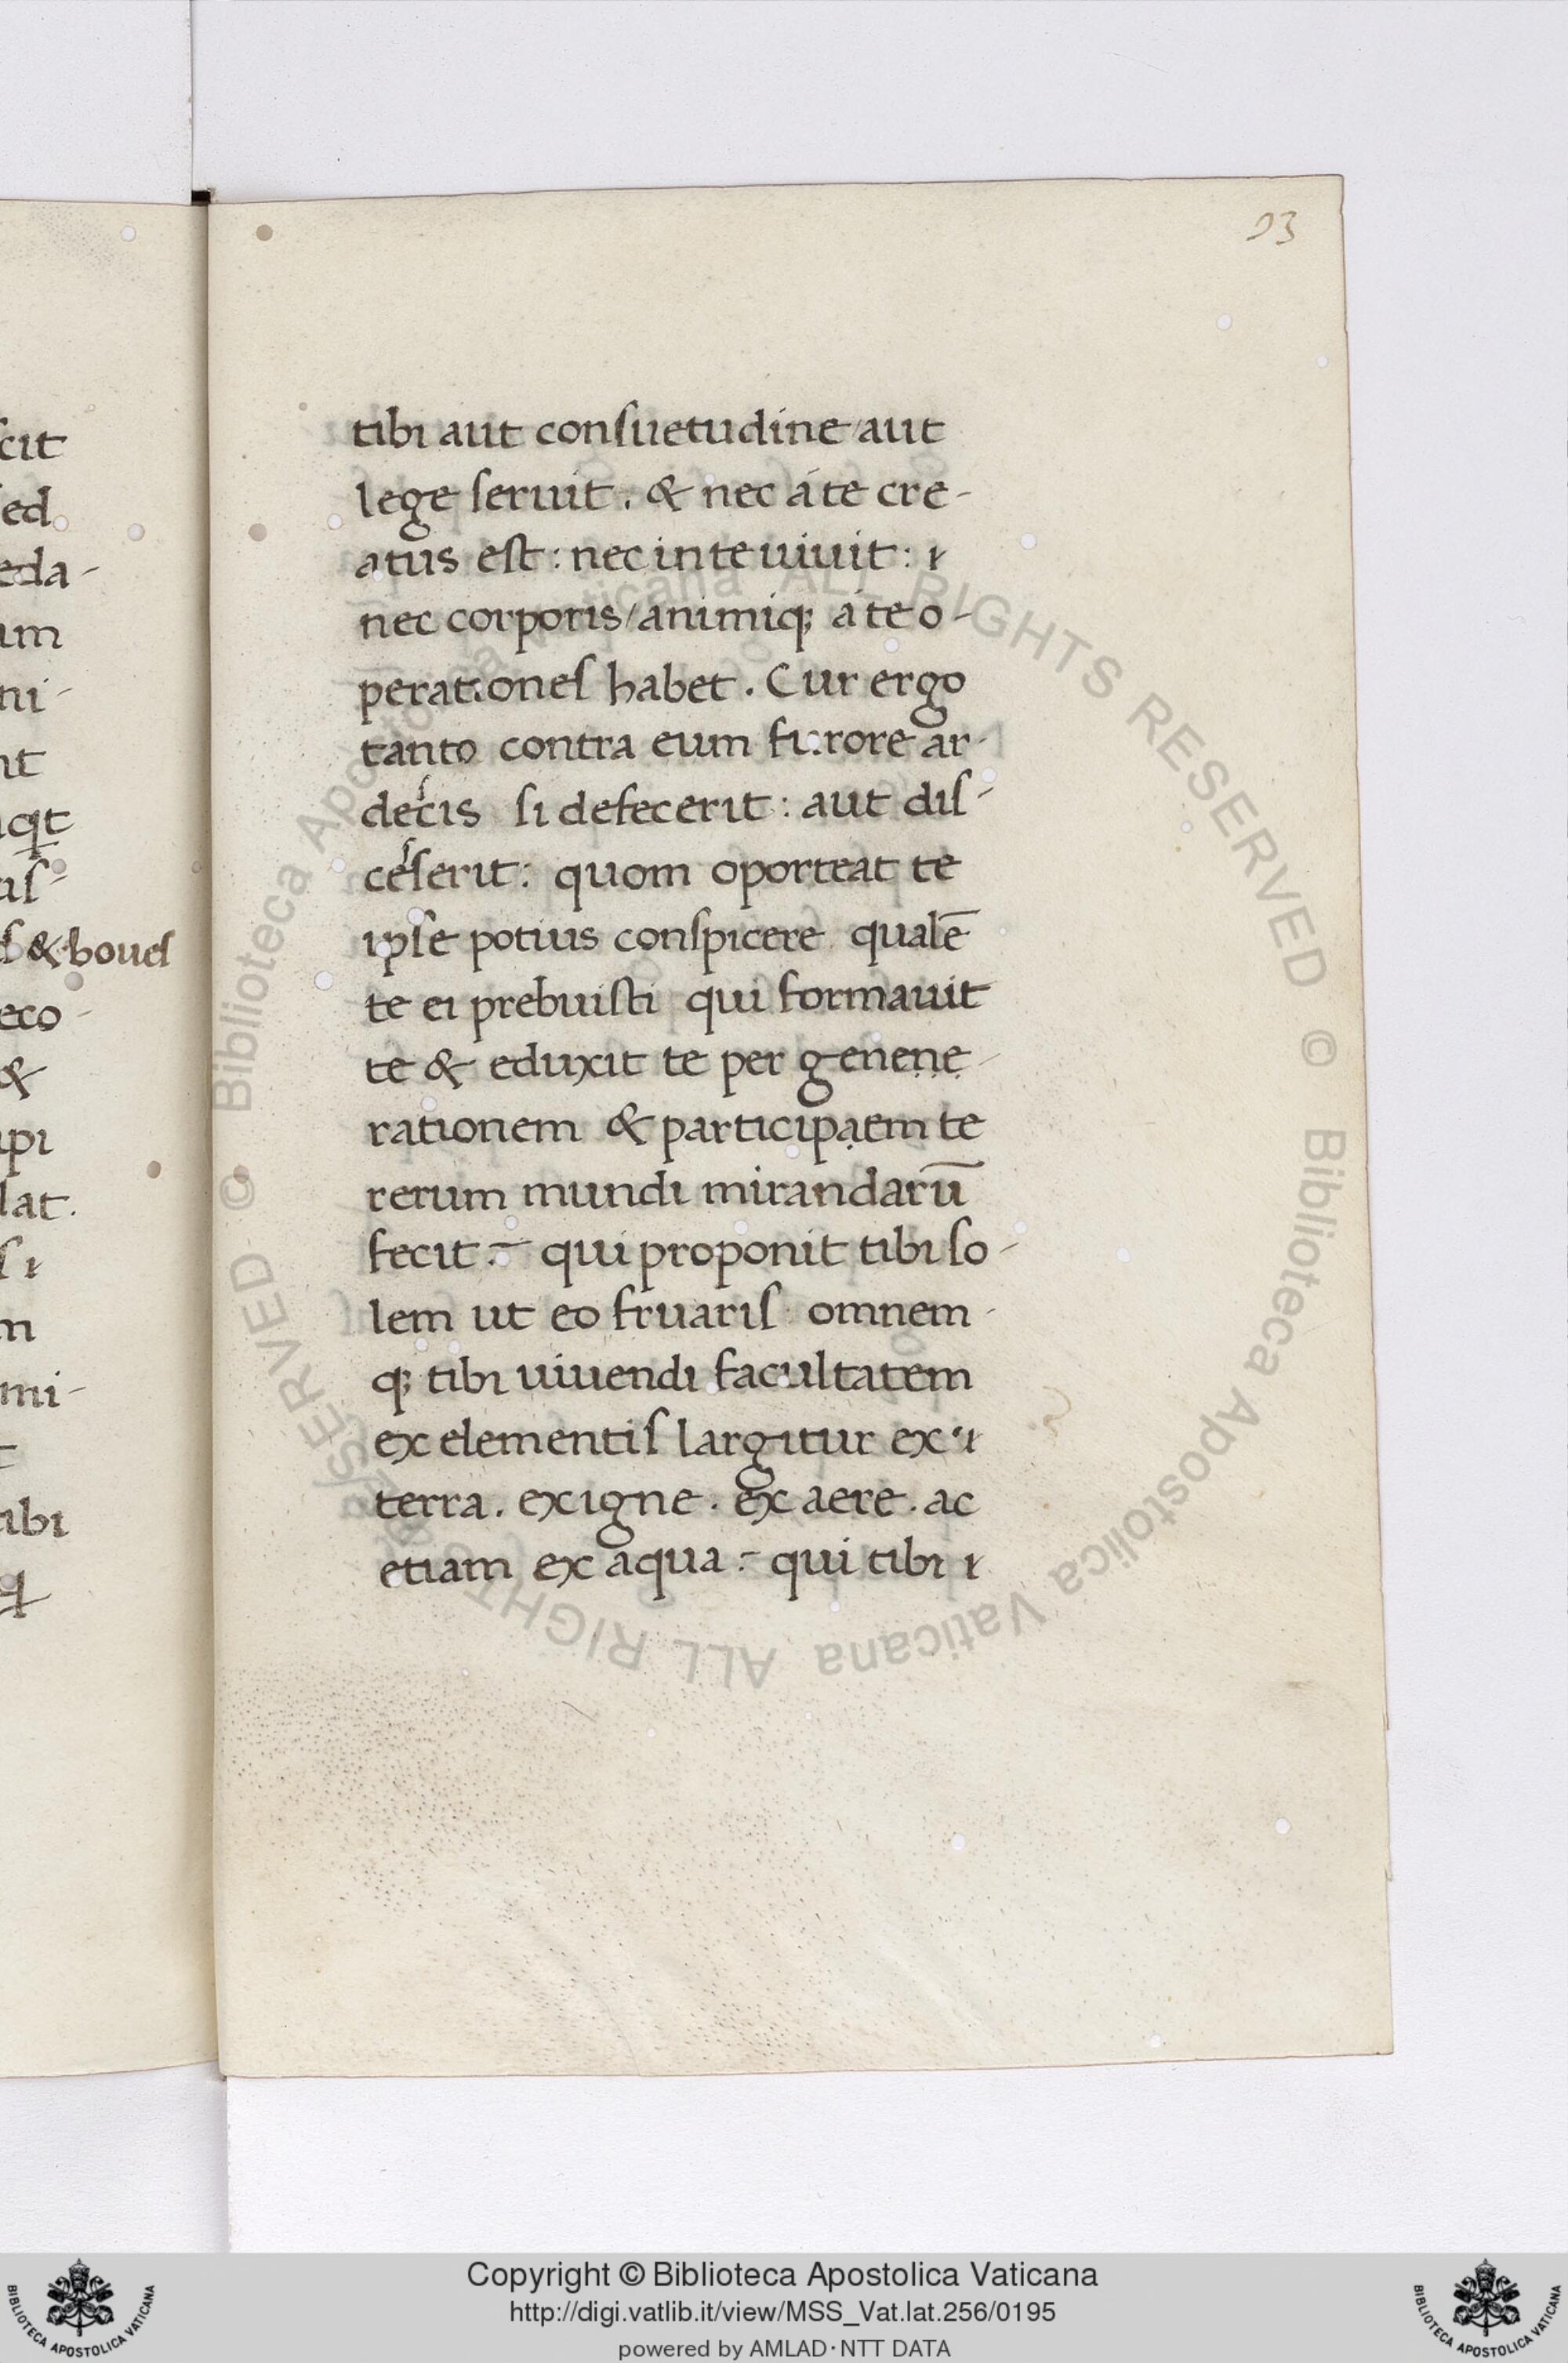 93
cit
ed
eda-
um
ni-
nt
cqt
& boues
eco-
&
ipi
lat.
mi-
ibi
tibi aut consuetudine/aut
lege seruit. & nec á te cre-
atus est: nec in te uiuit:
nec corporis/animiq; á te o-
perationes habet. Cur ergo
tanto contra eum furore ar-
decis si defecerit: aut dis-
ceſserit: quom oporteat te
ipse potius conspicere qualē
te ei prebuisti qui formauit
te & eduxit te per genene-
rationem & participaem te
rerum mundi mirandarū
fecit:- qui proponit tibi so-
lem ut eo fruaris omnem-
q; tibi uiuendi facultatem
ex elementis largitur ex
terra. ex igne. ex aere. ac
etiam ex aqua:- qui tibi
© Biblioteca Apostolica Vaticana ALL RIGHTS RESERVED
© Biblioteca Apostolica Vaticana ALL RIGHTS RESERVED
Copyright © Biblioteca Apostolica Vaticana
http://digi.vatlib.it/view/MSS_Vat.lat.256/0195
powered by AMLAD·NTT DATA
BIBLIOTECA APOSTOLICA VATICANA
BIBLIOTECA APOSTOLICA VATICANA